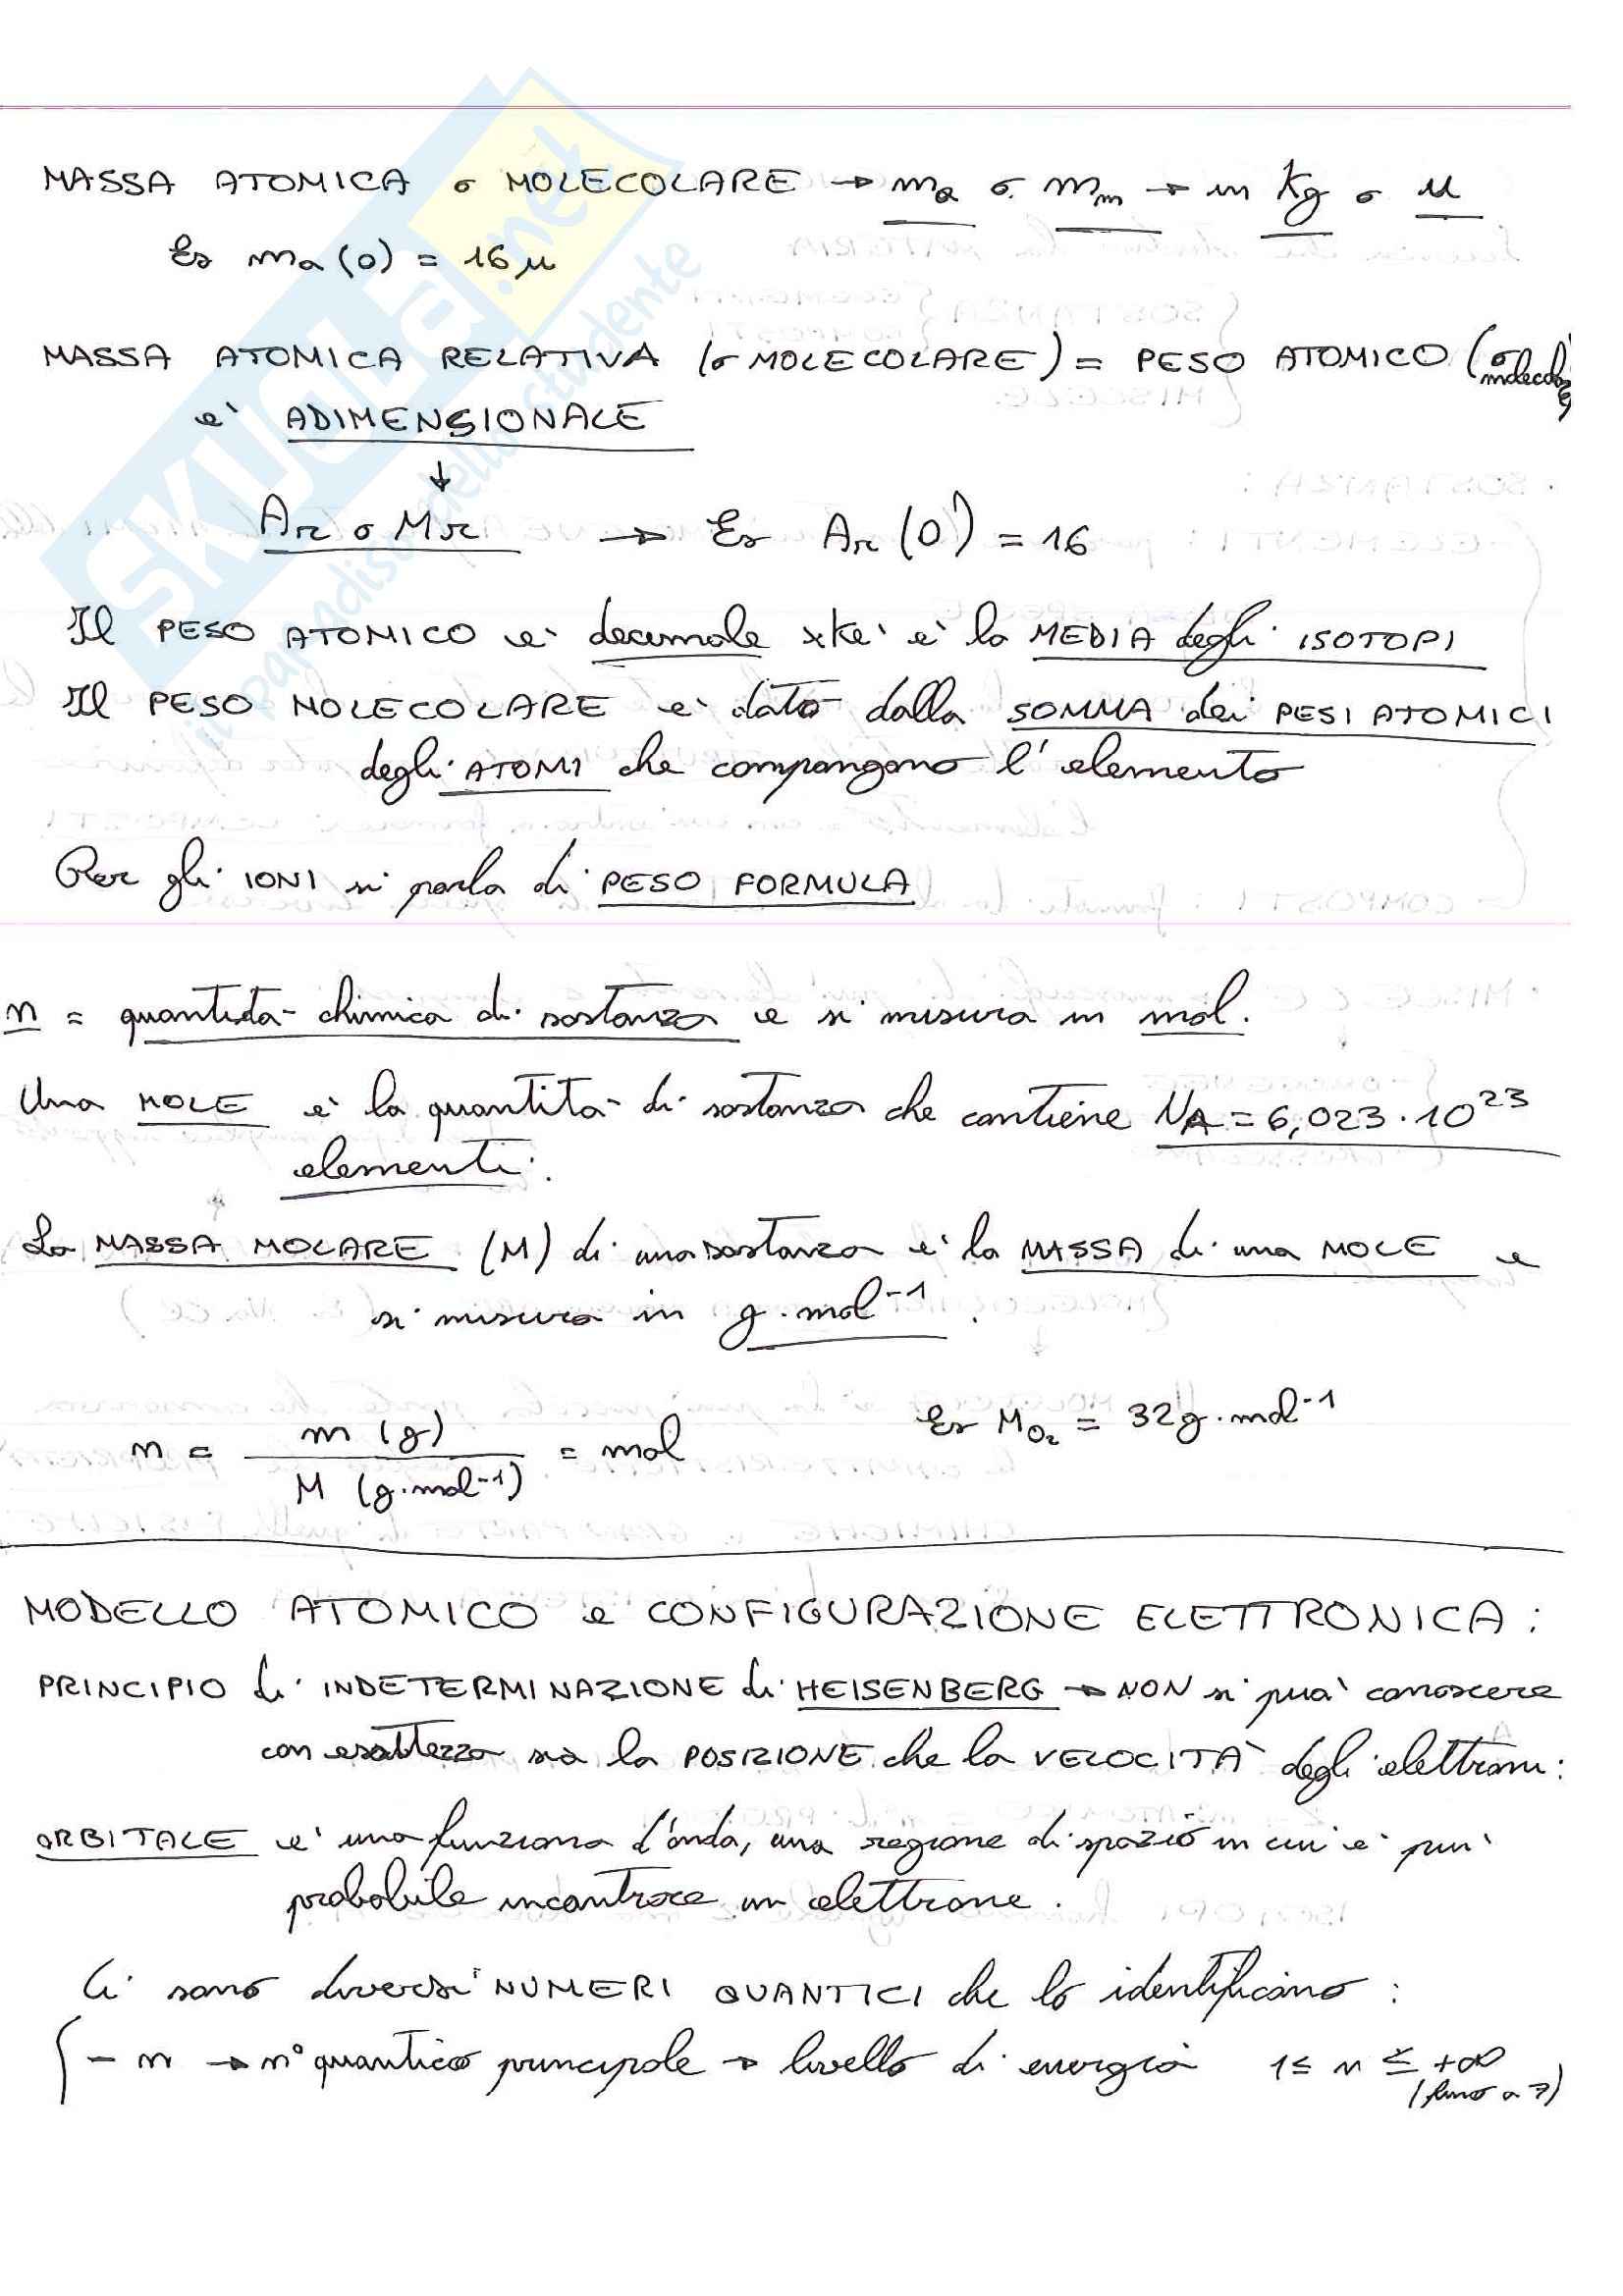 MASSA ATOMICA o MOLECOLARE → ma o mm → in Kg o u
Es ma (O) = 16 u
MASSA ATOMICA RELATIVA (o MOLECOLARE) = PESO ATOMICO (o molecolare)
e' ADIMENSIONALE
↓
Ar o Mr → Es Ar (O) = 16
Il PESO ATOMICO e' decimale xke' e' la MEDIA degli ISOTOPI
Il PESO MOLECOLARE e' dato dalla SOMMA dei PESI ATOMICI
degli ATOMI che compongono l'elemento
Per gli IONI si parla di PESO FORMULA
n = quantità chimica di sostanza e si misura in mol.
Una MOLE e' la quantità di sostanza che contiene NA = 6,023 · 10²³
elementi.
La MASSA MOLARE (M) di una sostanza e' la MASSA di una MOLE e
si misura in g·mol⁻¹.
n = m (g) / M (g·mol⁻¹) = mol Es M O₂ = 32g·mol⁻¹
MODELLO ATOMICO e CONFIGURAZIONE ELETTRONICA :
PRINCIPIO di INDETERMINAZIONE di HEISENBERG → NON si puo' conoscere
con esattezza sia la POSIZIONE che la VELOCITA' degli elettroni:
ORBITALE e' una funziona d'onda, una regione di spazio in cui e' piu'
probabile incontrare un elettrone.
Ci sono diversi NUMERI QUANTICI che lo identificano :
{ - n → n° quantico principale → livello di energia 1 ≤ n ≤ +∞
(fino a 7)
SKUOLA.net
il paradiso dello studente